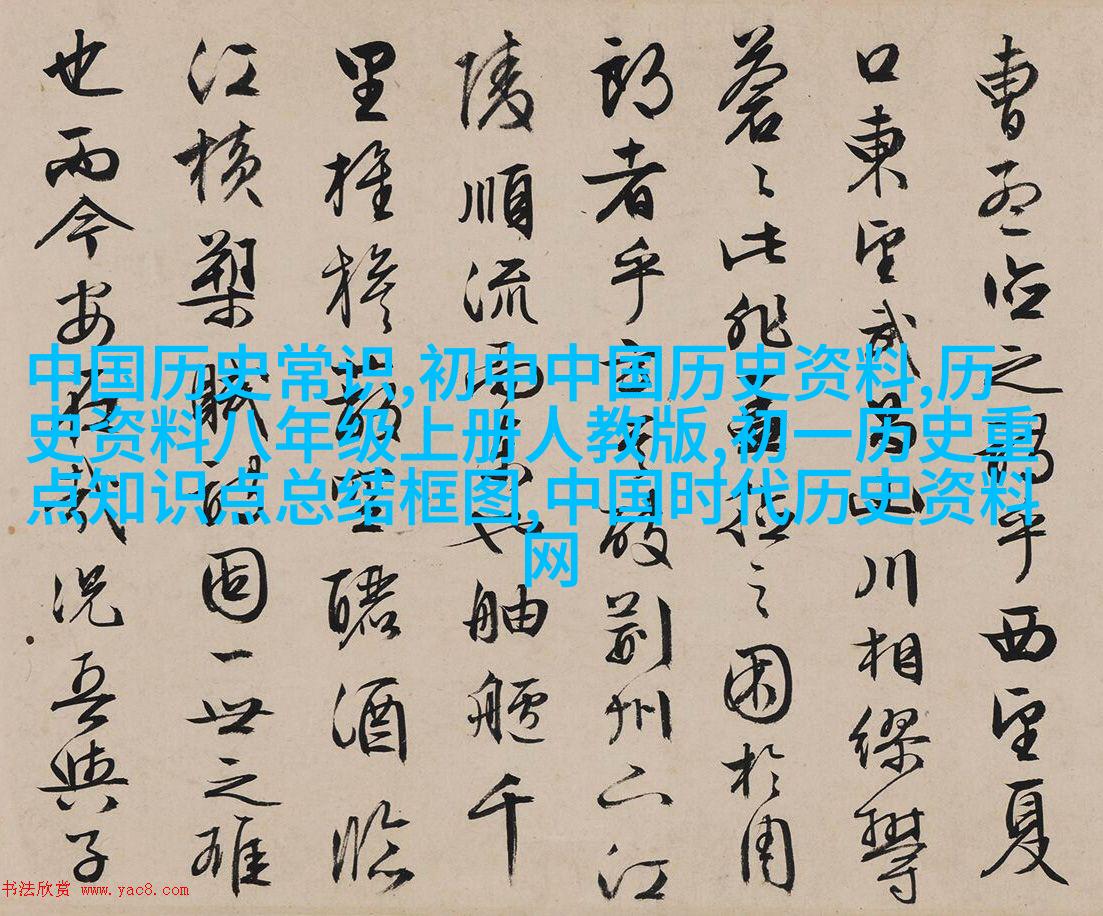 曹孟德之詩乎西望夏
口東望武昌山川相繆鬱
蒼〻此非孟德之困於周
郎者乎方其破荊州下江
陵順流而東也舳艫千
里旌旗蔽空釃酒臨
江橫槊賦詩固一世之雄
也而今安在哉況吾與子
中国历史常识,初中中国历史资料,历
史资料八年级上册人教版,初一历史重
点知识点总结框图,中国时代历史资料
网
书法欣赏 www.yac8.com